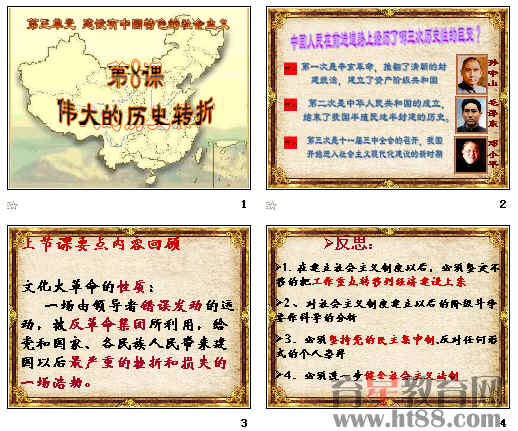 第三单元 建设有中国特色的社会主义
第8课
伟大的历史转折
1
中国人民在前进道路上经历了哪三次历史性的巨变?
第一次是辛亥革命,推翻了清朝的封
建统治,建立了资产阶级共和国
孙中山
第二次是中华人民共和国的成立,
结束了我国半殖民地半封建的历史。
毛泽东
第三次是十一届三中全会的召开,我国
开始进入社会主义现代化建设的新时期
邓小平
2
上节课要点内容回顾
文化大革命的性质:
一场由领导者错误发动的运
动,被反革命集团所利用,给
党和国家、各民族人民带来建
国以后最严重的挫折和损失的
一场浩劫。
3
➢反思:
➢1.在建立社会主义制度以后,必须坚定不
移的把工作重点转移到经济建设上来
➢2、对社会主义制度建立以后的阶级斗争
要作科学的分析
➢3.必须坚持党的民主集中制,反对任何形
式的个人崇拜
➢4.必须进一步健全社会主义法制
4
育星教育网
www.ht88.com